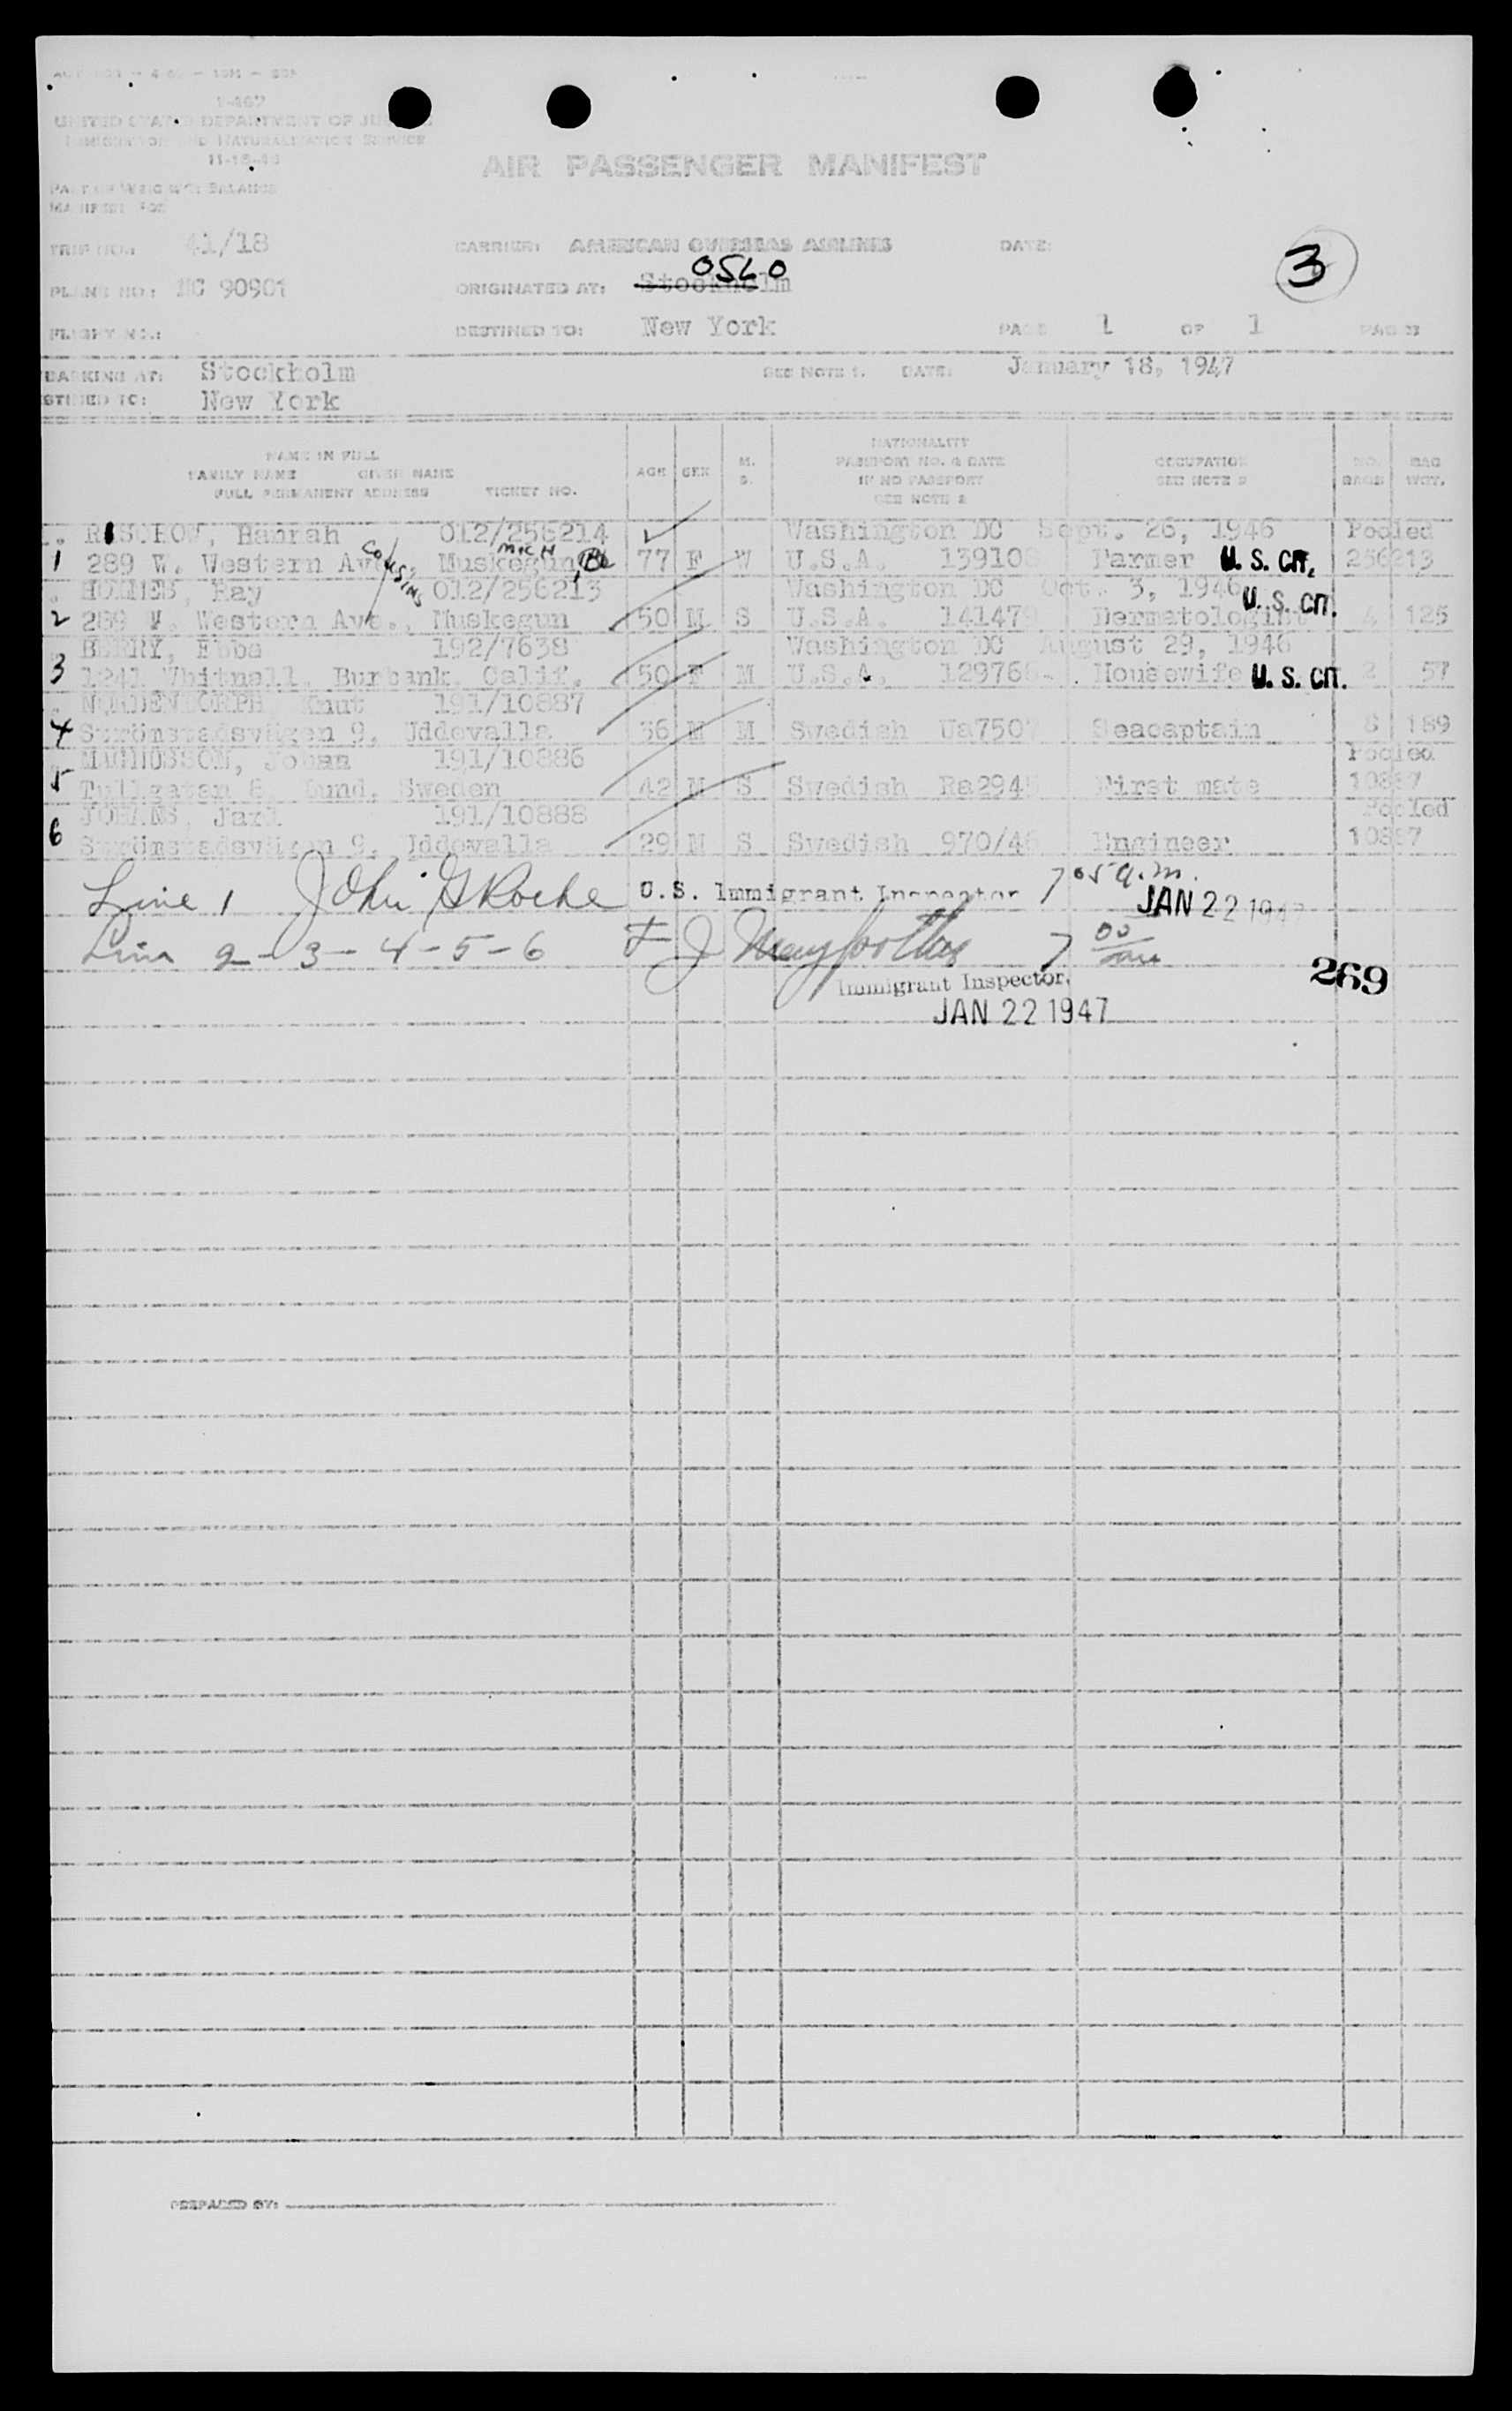 I-467
UNITED STATES DEPARTMENT OF JUSTICE
IMMIGRATION AND NATURALIZATION SERVICE
11-15-43
AIR PASSENGER MANIFEST
PART OF WEIGHT BALANCE
MANIFEST FOR
TRIP NO.: 41/18 CARRIER: AMERICAN OVERSEAS AIRLINES DATE: 3
OSLO
PLANE NO.: NC 90901 ORIGINATED AT: Stockholm
FLIGHT NO.: DESTINED TO: New York PAGE 1 OF 1 PAGES
BARKING AT: Stockholm SEE NOTE 1. DATE: January 18, 1947
STINED TO: New York
NAME IN FULL
FAMILY NAME GIVEN NAME
FULL PERMANENT ADDRESS TICKET NO.
AGE SEX M. S.
NATIONALITY
PASSPORT NO. & DATE
IF NO PASSPORT
SEE NOTE 2
OCCUPATION
SEE NOTE 2
NO. BAGS
BAG WGT.
Hannah 012/256214 Washington DC Sept. 26, 1946 Pooled
1 289 W. Western Ave., Muskegun, MICH 77 F W U.S.A. 139108 Farmer U. S. CIT. 256213
COUSINS
HOLMES, Ray 012/256213 Washington DC Oct. 3, 1946
2 289 W. Western Ave., Muskegun 50 M S U.S.A. 141479 Dermatologist U. S. CIT. 4 125
BERRY, Ebba 192/7638 Washington DC August 29, 1946
3 1241 Whitnall, Burbank, Calif. 50 F M U.S.A. 129766 Housewife U. S. CIT. 2 57
Knut 191/10887
4 Strömstadsvägen 9, Uddevalla 36 M M Swedish Ua7507 Seacaptain 8 189
MAGNUSSON, Johan 191/10886 Pooled
5 Tullgatan 8, Sweden 42 M S Swedish Ra2945 First mate 10887
Jarl 191/10888 Pooled
6 Strömstadsvägen 9, Uddevalla 29 M S Swedish 970/46 Engineer 10887
Line 1 John G Roche U.S. Immigrant Inspector 7 05 a.m.
JAN 22 1947
Line 2 - 3 - 4 - 5 - 6 F J 7 00
Immigrant Inspector.
269
JAN 22 1947
PREPARED BY: